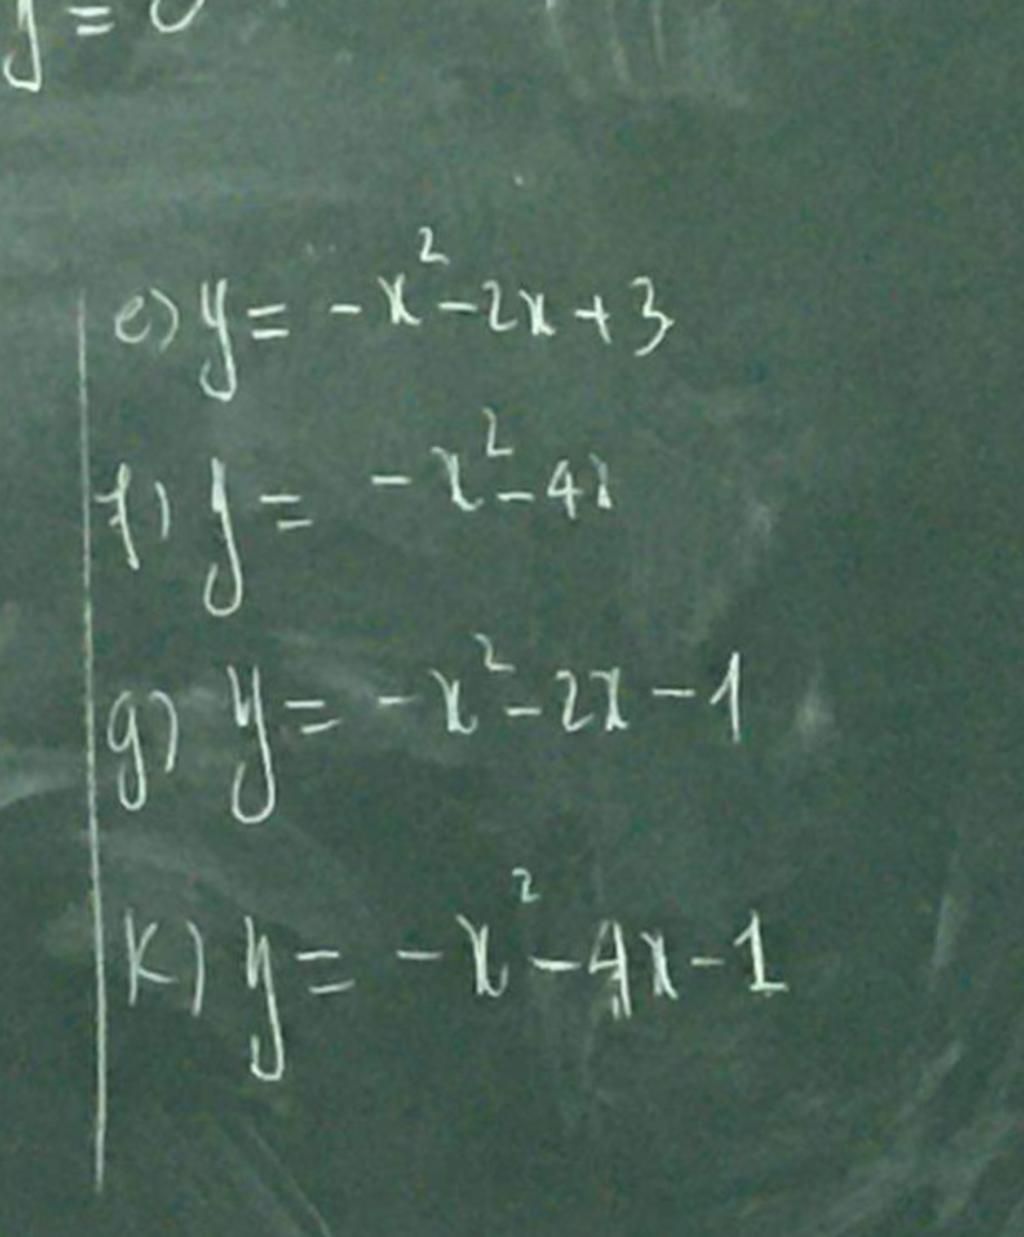 y = 0
e) y = -x² - 2x + 3
f) y = -x² - 4x
g) y = -x² - 2x - 1
k) y = -x² - 4x - 1